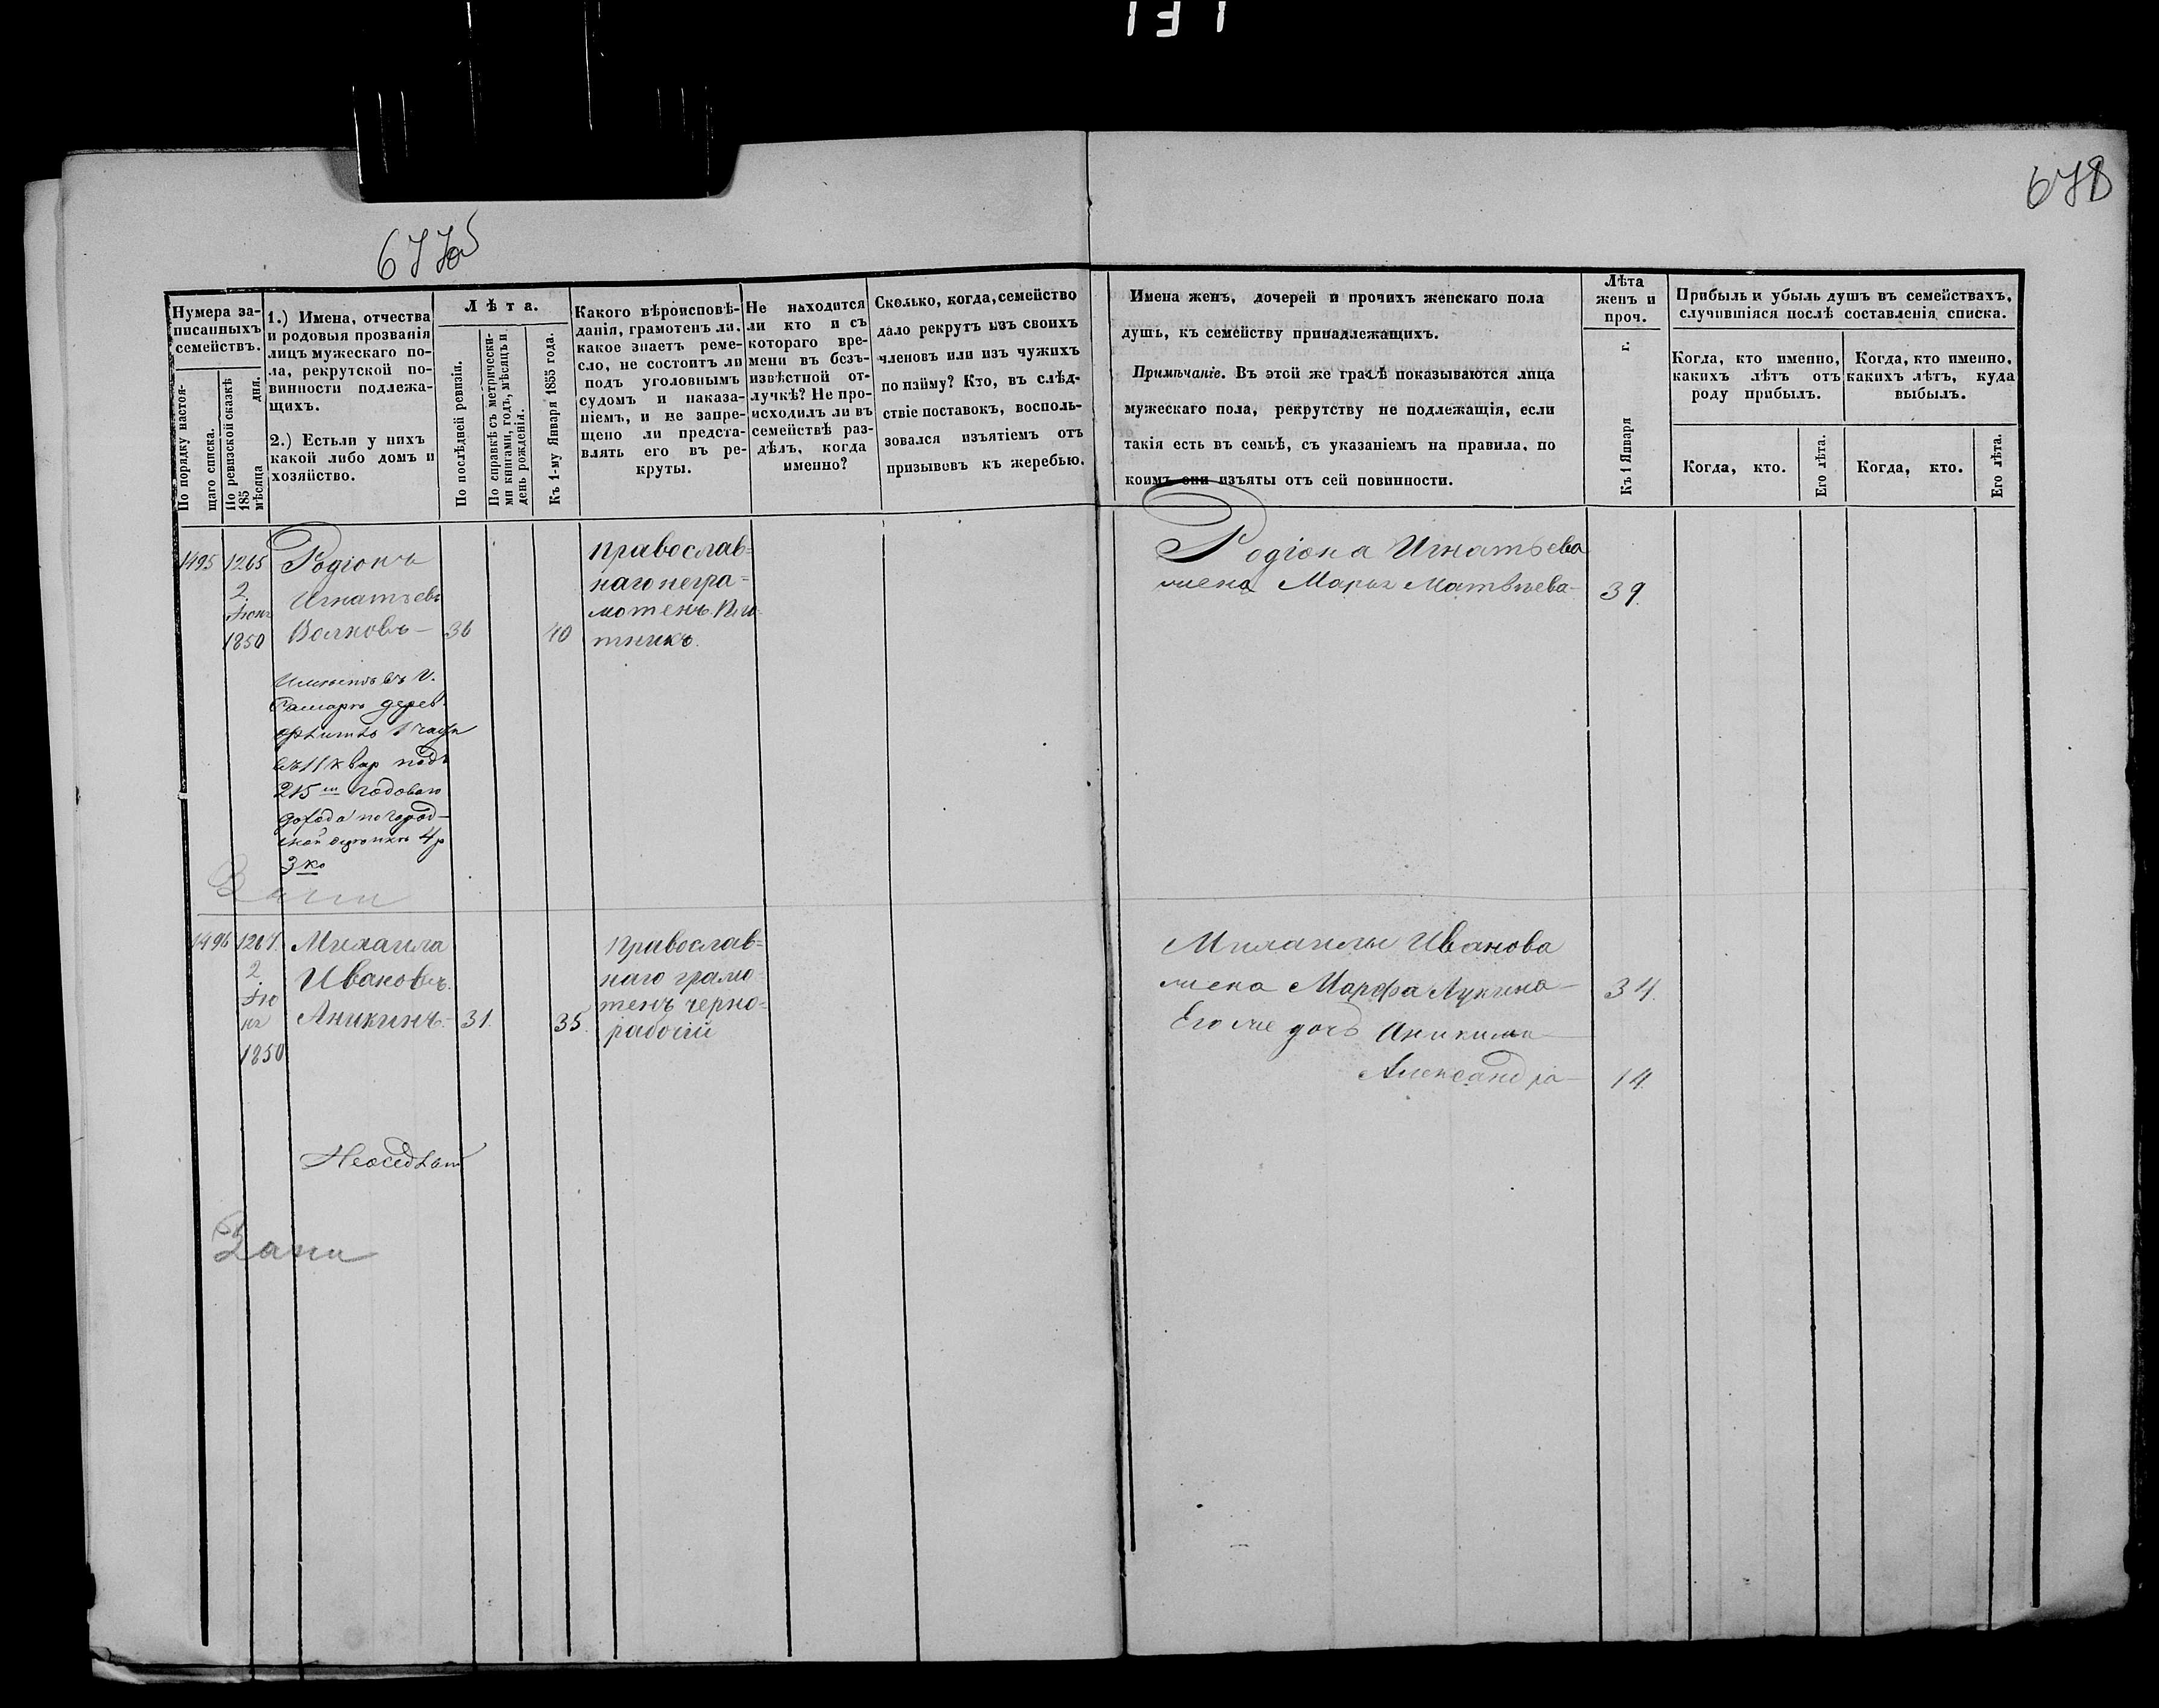 677об
678
Нумера за-
писанныхъ
семействъ.
По порядку настоя-
щаго списка.
По ревизской сказкѣ
185
мѣсяца дня.
1.) Имена, отчества
и родовыя прозванія
лицъ мужескаго по-
ла, рекрутской по-
винности подлежа-
щихъ.
2.) Естьли у нихъ
какой либо домъ и
хозяйство.
Лѣта.
По послѣдней ревизіи.
По справкѣ съ метрически-
ми книгами, годъ, мѣсяцъ и
день рожденія.
Къ 1-му Января 1855 года.
Какого вѣроисповѣ-
данія, грамотенъ ли,
какое знаетъ реме-
сло, не состоитъ ли
подъ уголовнымъ
судомъ и наказа-
ніемъ, и не запре-
щено ли предста-
влять его въ ре-
круты.
Не находится
ли кто и съ
котораго вре-
мени въ безъ-
извѣстной от-
лучкѣ? Не про-
исходилъ ли въ
семействѣ раз-
дѣлъ, когда
именно?
Сколько, когда, семейство
дало рекрутъ изъ своихъ
членовъ или изъ чужихъ
по найму? Кто, въ слѣд-
ствіе поставокъ, восполь-
зовался изъятіемъ отъ
призывовъ къ жеребью.
Имена женъ, дочерей и прочихъ женскаго пола
душъ, къ семейству принадлежащихъ.
Примѣчаніе. Въ этой же графѣ показываются лица
мужескаго пола, рекрутству не подлежащія, если
такія есть въ семьѣ, съ указаніемъ на правила, по
коимъ они изъяты отъ сей повинности.
Лѣта
женъ и
проч.
Къ 1 Января г.
Прибыль и убыль душъ въ семействахъ,
случившіяся послѣ составленія списка.
Когда, кто именно,
какихъ лѣтъ отъ
роду прибылъ.
Когда, кто именно,
какихъ лѣтъ, куда
выбылъ.
Когда, кто.
Его лѣта.
Когда, кто.
Его лѣта.
1495 1265 Родіонъ
2
Іюня Игнатьевъ
1850 Волковъ— 36 40
Православ=
наго негра=
мотенъ. Пло-
тникъ.
Родіона Игнатьева
жена Марья Матвѣева— 39.
Имѣетъ въ г.
Самарѣ дерев.
1 части
въ 11 квар подъ
215 годоваго
дохода по город-
ской оцѣнкѣ 4 р
3 ко
1496 1267. Михаила
2
Ію Ивановъ.
ня Аникинъ.— 31. 35.
1850
Православ=
наго грамо-
тенъ черно-
рабочій
Михаилы Иванова
жена Марфа Лукина— 34.
Его же дочь Аникина—
Александра— 14.
Неоседлый